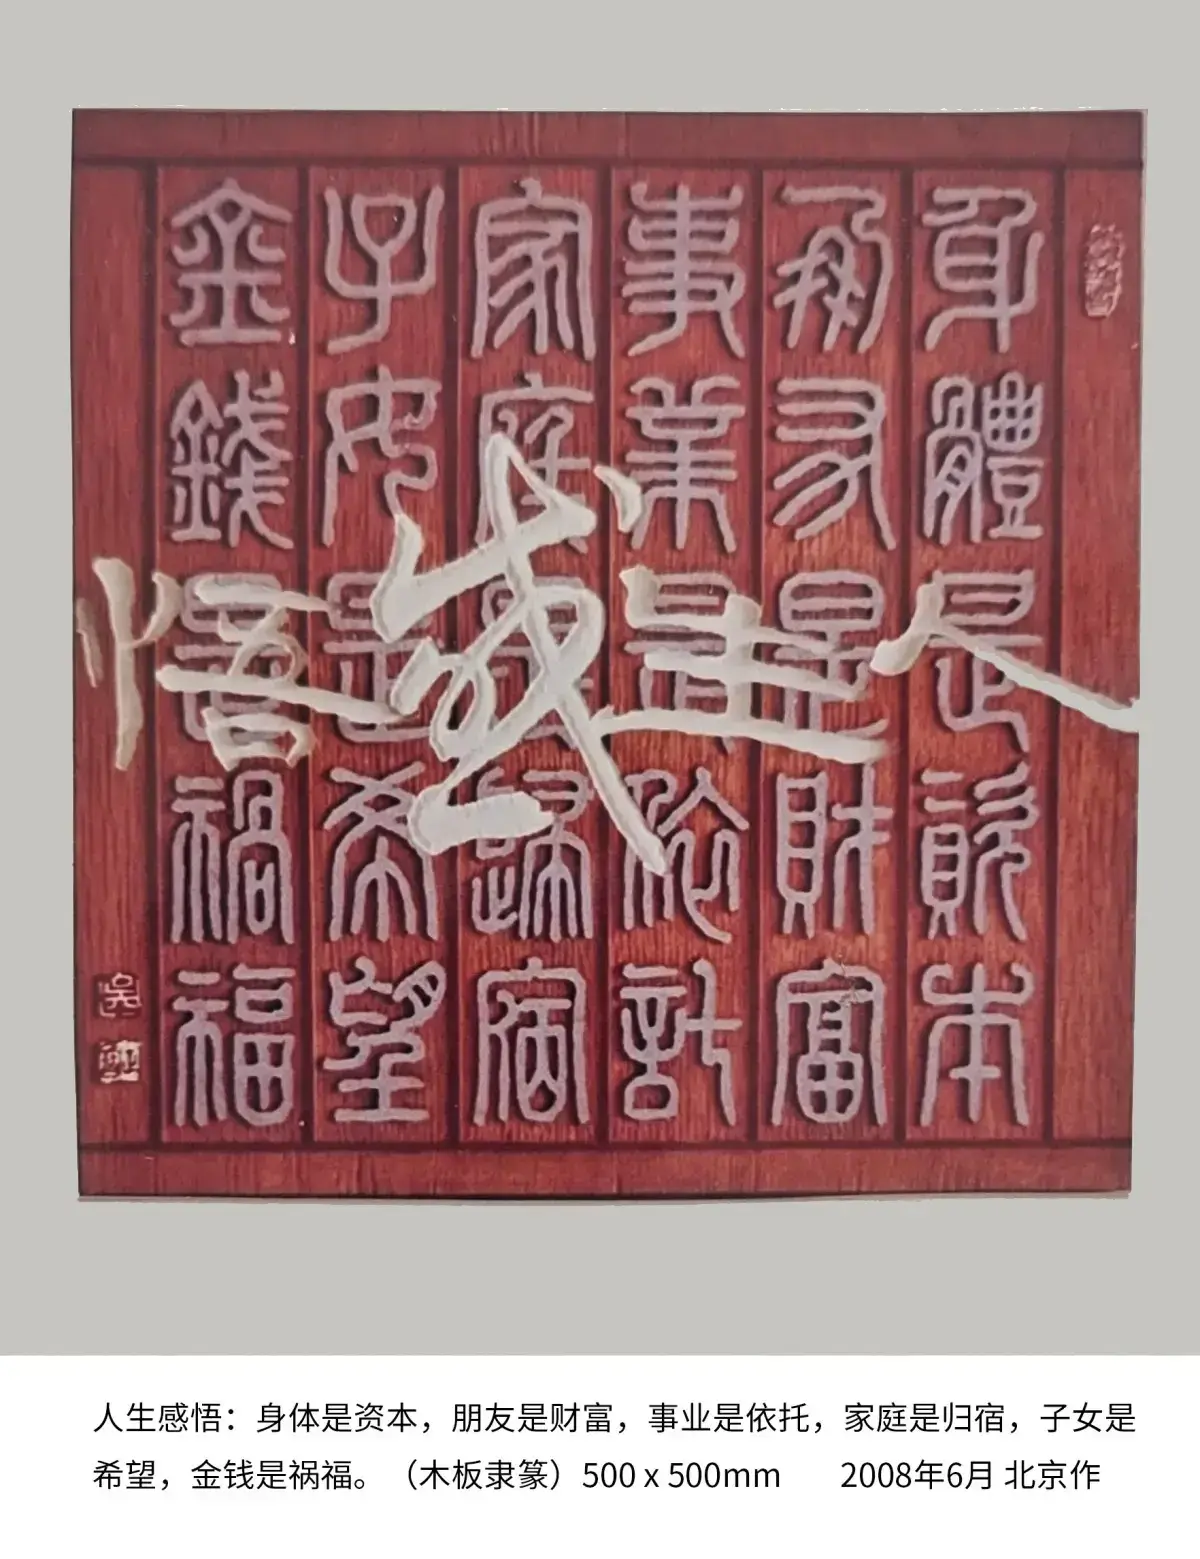 人生感悟
身體是資本
朋友是財富
事業是依託
家庭是歸宿
子女是希望
金錢是禍福
吴
人生感悟：身体是资本，朋友是财富，事业是依托，家庭是归宿，子女是
希望，金钱是祸福。（木板隶篆）500 x 500mm 2008年6月 北京作